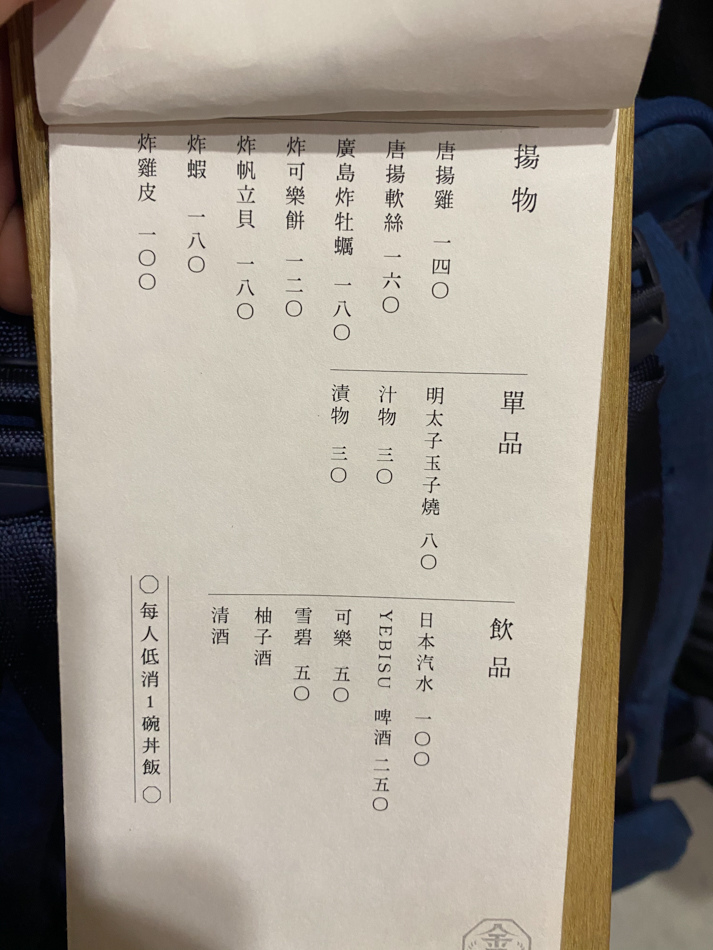 揚物
唐揚雞 一四〇
唐揚軟絲 一六〇
廣島炸牡蠣 一八〇
炸可樂餅 一二〇
炸帆立貝 一八〇
炸蝦 一八〇
炸雞皮 一〇〇
單品
明太子玉子燒 八〇
汁物 三〇
漬物 三〇
飲品
日本汽水 一〇〇
YEBISU 啤酒 二五〇
可樂 五〇
雪碧 五〇
柚子酒
清酒
〇每人低消1碗丼飯〇
金